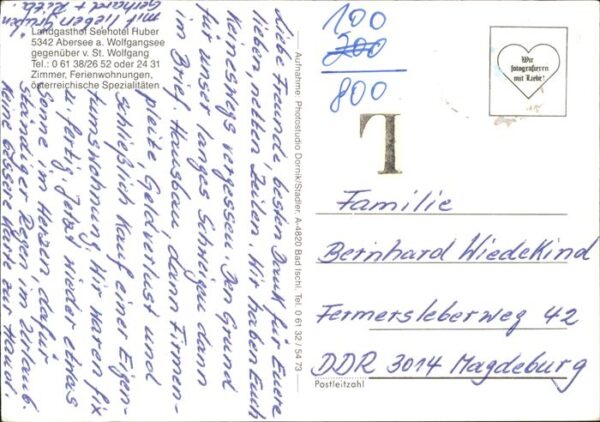 Landgasthof Seehotel Huber
5342 Abersee a. Wolfgangsee
gegenüber v. St. Wolfgang
Tel.: 0 61 38/26 52 oder 24 31
Zimmer, Ferienwohnungen,
österreichische Spezialitäten
Liebe Freunde, besten Dank für Euere
lieben, netten Zeilen. Wir haben Euch
keineswegs vergessen. Den Grund
für unser langes Schweigen dann
im Brief. Hausbau, dann Firmen-
pleite, Geldverlust und
schließlich Kauf einer Eigen-
tumswohnung. Wir waren fix
u. fertig. Jetzt wieder etwas
Sonne im Herzen, dafür
ständiger Regen im Urlaub.
Keine bessere Karte zur Hand.
mit lieben Grüßen
Gerhard +
Aufnahme: Photostudio Dornik/Stadler, A-4820 Bad Ischl, Tel. 0 61 32 / 54 73
100
200
800
Wir
fotografieren
mit Liebe!
L
Familie
Bernhard Wiedekind
Fermersleberweg 42
DDR 3014 Magdeburg
Postleitzahl